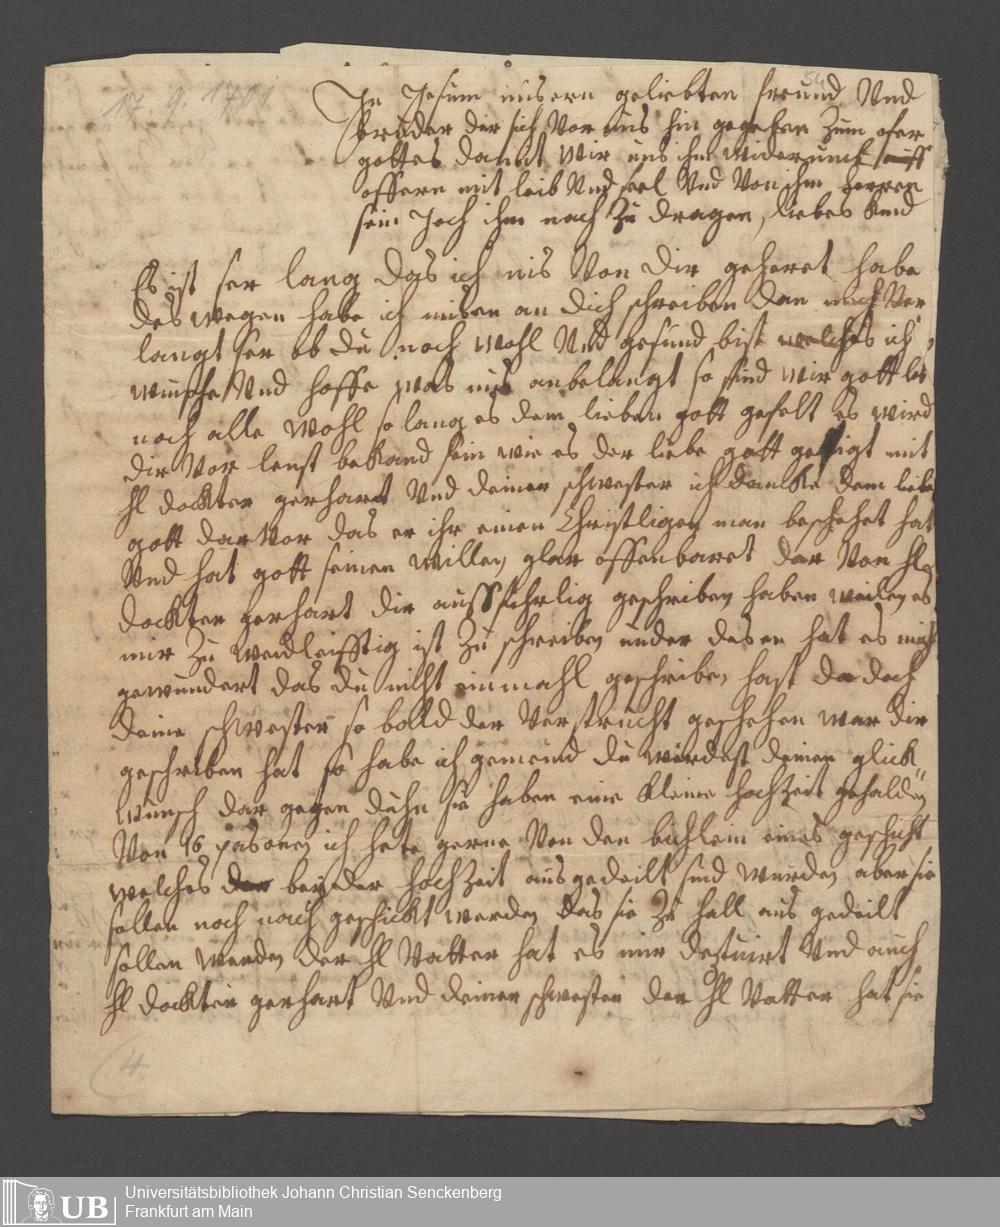 54
17. 9. 1701
In Jesum unsern geliebten freund Und
bruder der sich Vor uns hin gegeben Zum ofer
gottes damit Wir uns ihm widerumb auff
offern mit leib Und seel Und Von ihm herren
sein Joch ihm nach Zu dragen, liebes kind
Es ist ser lang das ich nis Von dir geheret habe
des wegen habe ich misen an dich schreiben dan mich Ver
langt ser ob du noch wohl Und gesund bist welches ich
winsche Und hoffe was uns anbelangt so sind wir gott lob
noch alle wohl so lang es dem lieben gott gefelt es wird
dir Vor lenst bekand sein wie es der liebe gott gefigt mit
hl dockter gerhart Und deiner schwester ich dancke dem liebe
gott dar Vor das er ihr einen Christligen man beschehet hat
Und hat gott seinen willen glar offenbaret dar Von hl
dockter gerhart dir aussfihrlig geschriben haben weilen es
mir Zu weidleifftig ist Zu schreiben under desen hat es mich
gewundert das du nicht einmahl geschriben hast da doch
deine schwester so bolld der Versprucht geschehen war dir
geschriben hat so habe ich gemeind du wirdest deinen glick
wunsch dar gegen duhn sie haben eine kleine hochzeit gehalden
Von 16 pasonen ich hete gerne Von den bichlein eines geschickt
welches bey der hochzeit aus gedeilt sind wurden aber sie
sollen noch nach geschickt werden das sie Zu hall aus gedeilt
sollen werden der hl Vatter hat es mir Und auch
hl dockter gerhart Und deiner schwester der hl Vatter hat sie
4
UB
Universitätsbibliothek Johann Christian Senckenberg
Frankfurt am Main